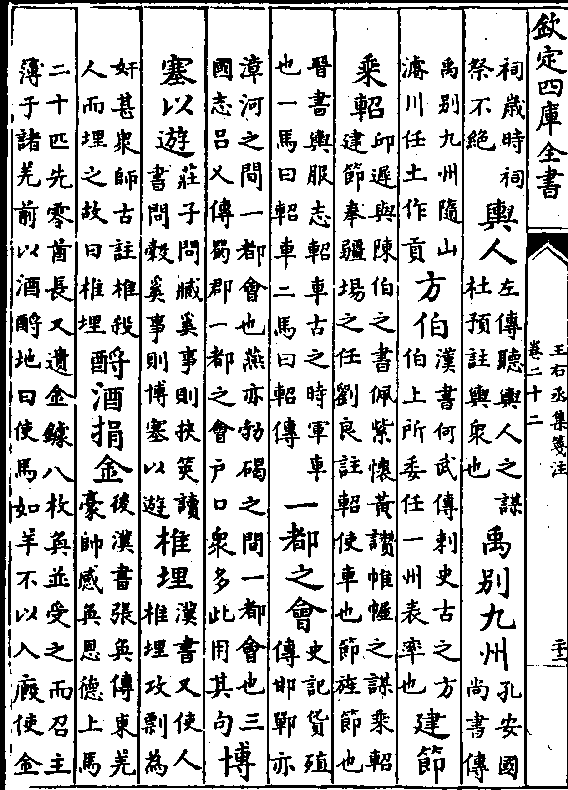 欽定四庫全書
王右丞集箋注
卷二十二
祠歲時祠
祭不絕
輿人
左傳聽輿人之謀
杜預註輿衆也
禹別九州
孔安國
尚書傳
禹別九州隨山
濬川任土作貢
方伯
漢書何武傳刺史古之方
伯上所委任一州表率也
建節
乘軺
邱遲與陳伯之書佩紫懷黃讚帷幄之謀乘軺
建節奉疆埸之任劉良註軺使車也節旌節也
晉書輿服志軺車古之時軍車
也一馬曰軺車二馬曰軺傳
一都之會
史記貨殖
傳邯鄲亦
漳河之間一都會也燕亦勃碣之間一都會也三
國志呂乂傳蜀郡一都之會戶口衆多此用其句
博
塞以遊
莊子問臧奚事則挾筴讀
書問穀奚事則博塞以遊
椎埋
漢書又使人
椎埋攻剽為
奸甚衆師古註椎殺
人而埋之故曰椎埋
酹酒捐金
後漢書張奐傳東羌
豪帥感奐恩德上馬
二十匹先零酋長又遺金鐻八枚奐並受之而召主
簿于諸羌前以酒酹地曰使馬如羊不以入廄使金